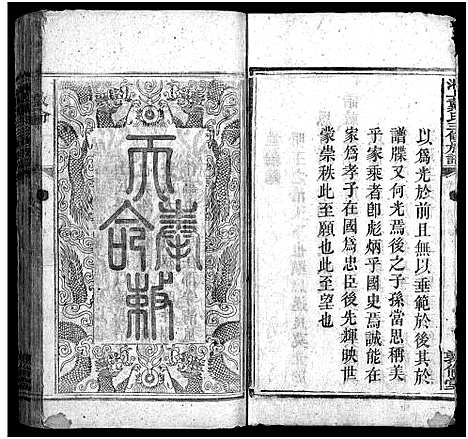 以爲光於前且無以垂範於後其於
譜牒又何光焉後之子孫當思稱美
乎家乘者卽彪炳乎國史焉誠能在
家爲孝子在國爲忠臣後先輝映世
蒙崇秩此至願也此至望也
奉敕
天命